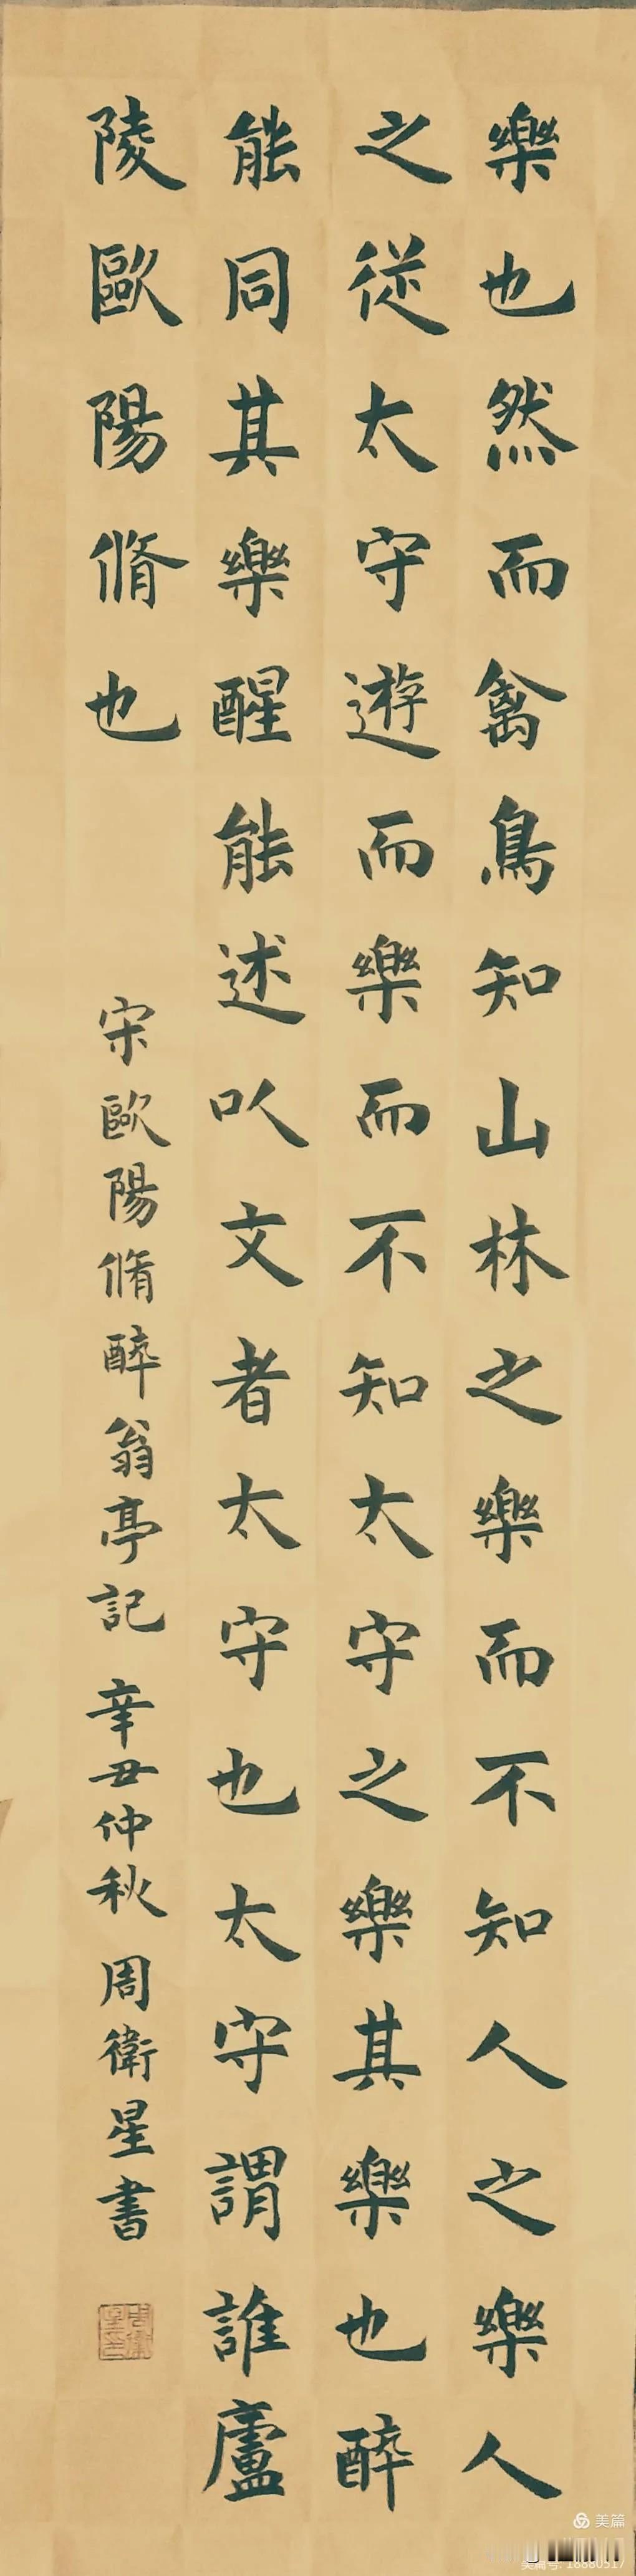 樂也然而禽鳥知山林之樂而不知人之樂人
之從太守遊而樂而不知太守之樂其樂也醉
能同其樂醒能述以文者太守也太守謂誰廬
陵歐陽脩也
宋歐陽脩醉翁亭記 辛丑仲秋 周衛星書
美篇